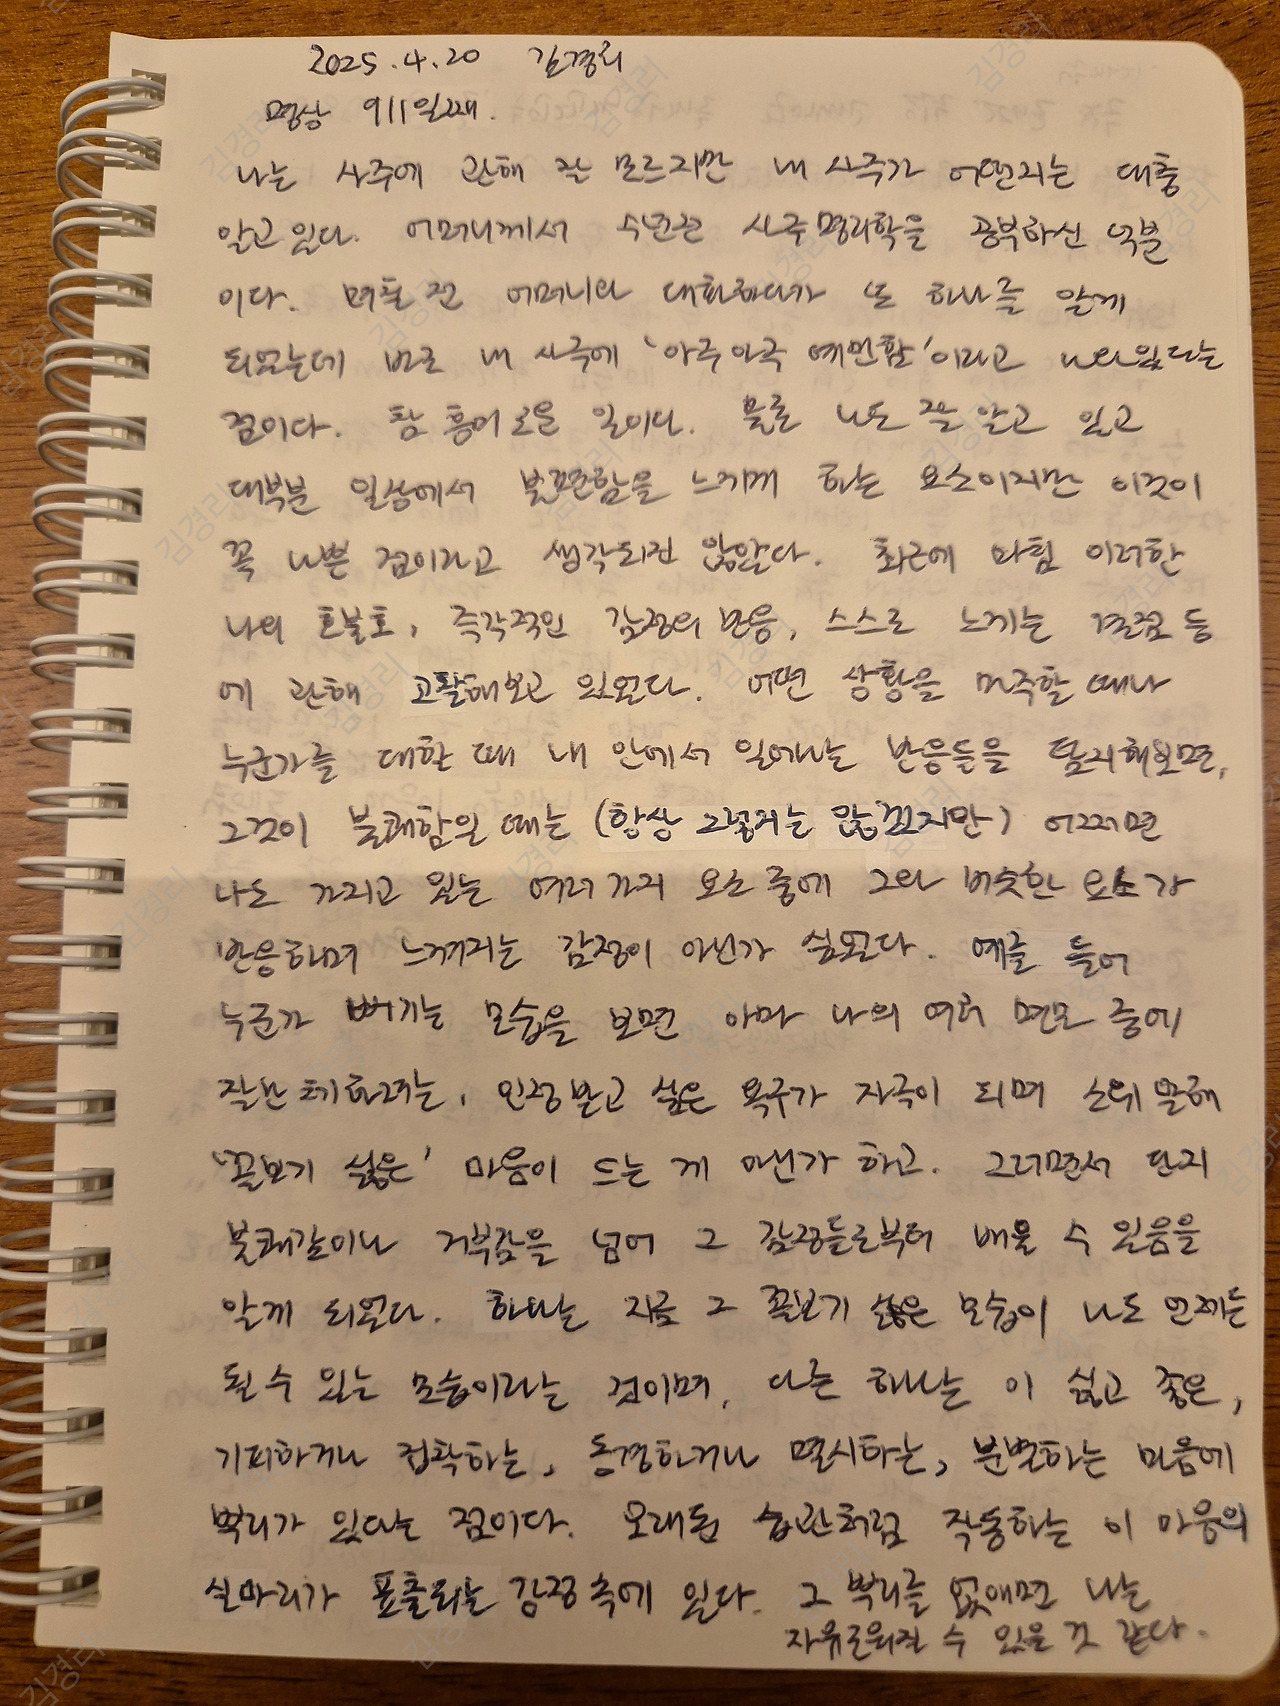 2025.4.20 김경리
명상 911일째.
나는 사주에 관해 잘 모르지만 내 사주가 어떤지는 대충
알고 있다. 어머니께서 수년간 사주명리학을 공부하신 덕분
이다. 며칠 전 어머니와 대화하다가 또 하나를 알게
되었는데 바로 내 사주에 '아주아주 예민함'이라고 나와있다는
점이다. 참 흥미로운 일이다. 물론 나도 잘 알고 있고
대부분 일상에서 불편함을 느끼게 하는 요소이지만 이것이
꼭 나쁜 점이라고 생각되진 않았다. 최근에 마침 이러한
나의 호불호, 즉각적인 감정의 반응, 스스로 느끼는 결점 등
에 관해 고찰해보고 있었다. 어떤 상황을 마주할 때나
누군가를 대할 때 내 안에서 일어나는 반응들을 탐지해보면,
그것이 불쾌함일 때는 (항상 그렇지는 않겠지만) 어쩌면
나도 가지고 있는 여러가지 요소 중에 그와 비슷한 요소가
반응하며 느껴지는 감정이 아닌가 싶었다. 예를 들어
누군가 뻐기는 모습을 보면 아마 나의 여러 면모 중에
잘난체하려는, 인정받고 싶은 욕구가 자극이 되며 소위 말해
'꼴보기 싫은' 마음이 드는 게 아닌가 하고. 그러면서 단지
불쾌감이나 거부감을 넘어 그 감정들로부터 배울 수 있음을
알게 되었다. 하나는 지금 그 꼴보기 싫은 모습이 나도 언제든
될 수 있는 모습이라는 점이며, 다른 하나는 이 싫고 좋은,
기피하거나 집착하는, 동경하거나 멸시하는, 분별하는 마음에
뿌리가 있다는 점이다. 오래된 습관처럼 작동하는 이 마음의
실마리가 표출되는 감정 속에 있다. 그 뿌리를 없애면 나는
자유로워질 수 있을 것 같다.